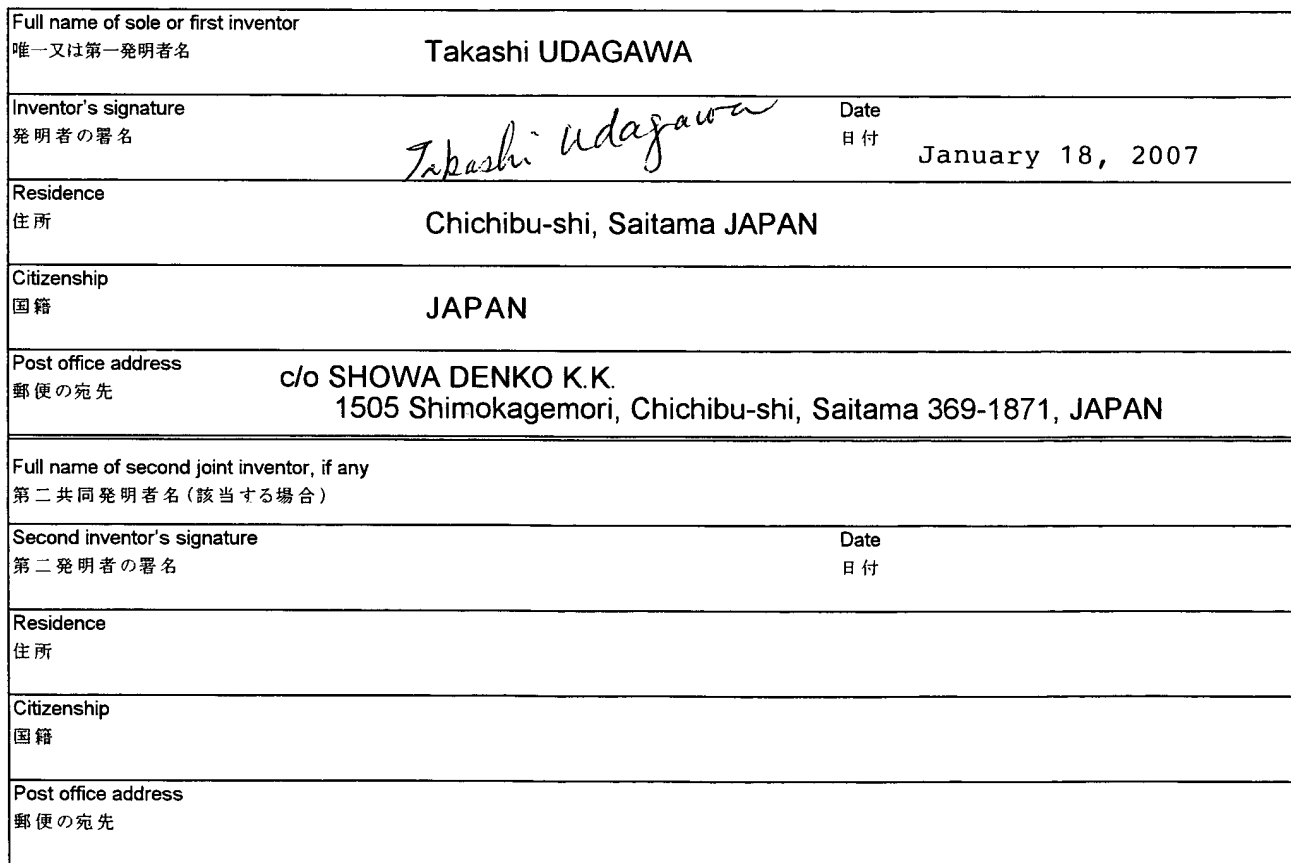 Full name of sole or first inventor
唯一又は第一発明者名
Takashi UDAGAWA
Inventor's signature
発明者の署名
Takashi Udagawa
Date
日付
January 18, 2007
Residence
住所
Chichibu-shi, Saitama JAPAN
Citizenship
国籍
JAPAN
Post office address
郵便の宛先
c/o SHOWA DENKO K.K.
1505 Shimokagemori, Chichibu-shi, Saitama 369-1871, JAPAN
Full name of second joint inventor, if any
第二共同発明者名(該当する場合)
Second inventor's signature
第二発明者の署名
Date
日付
Residence
住所
Citizenship
国籍
Post office address
郵便の宛先